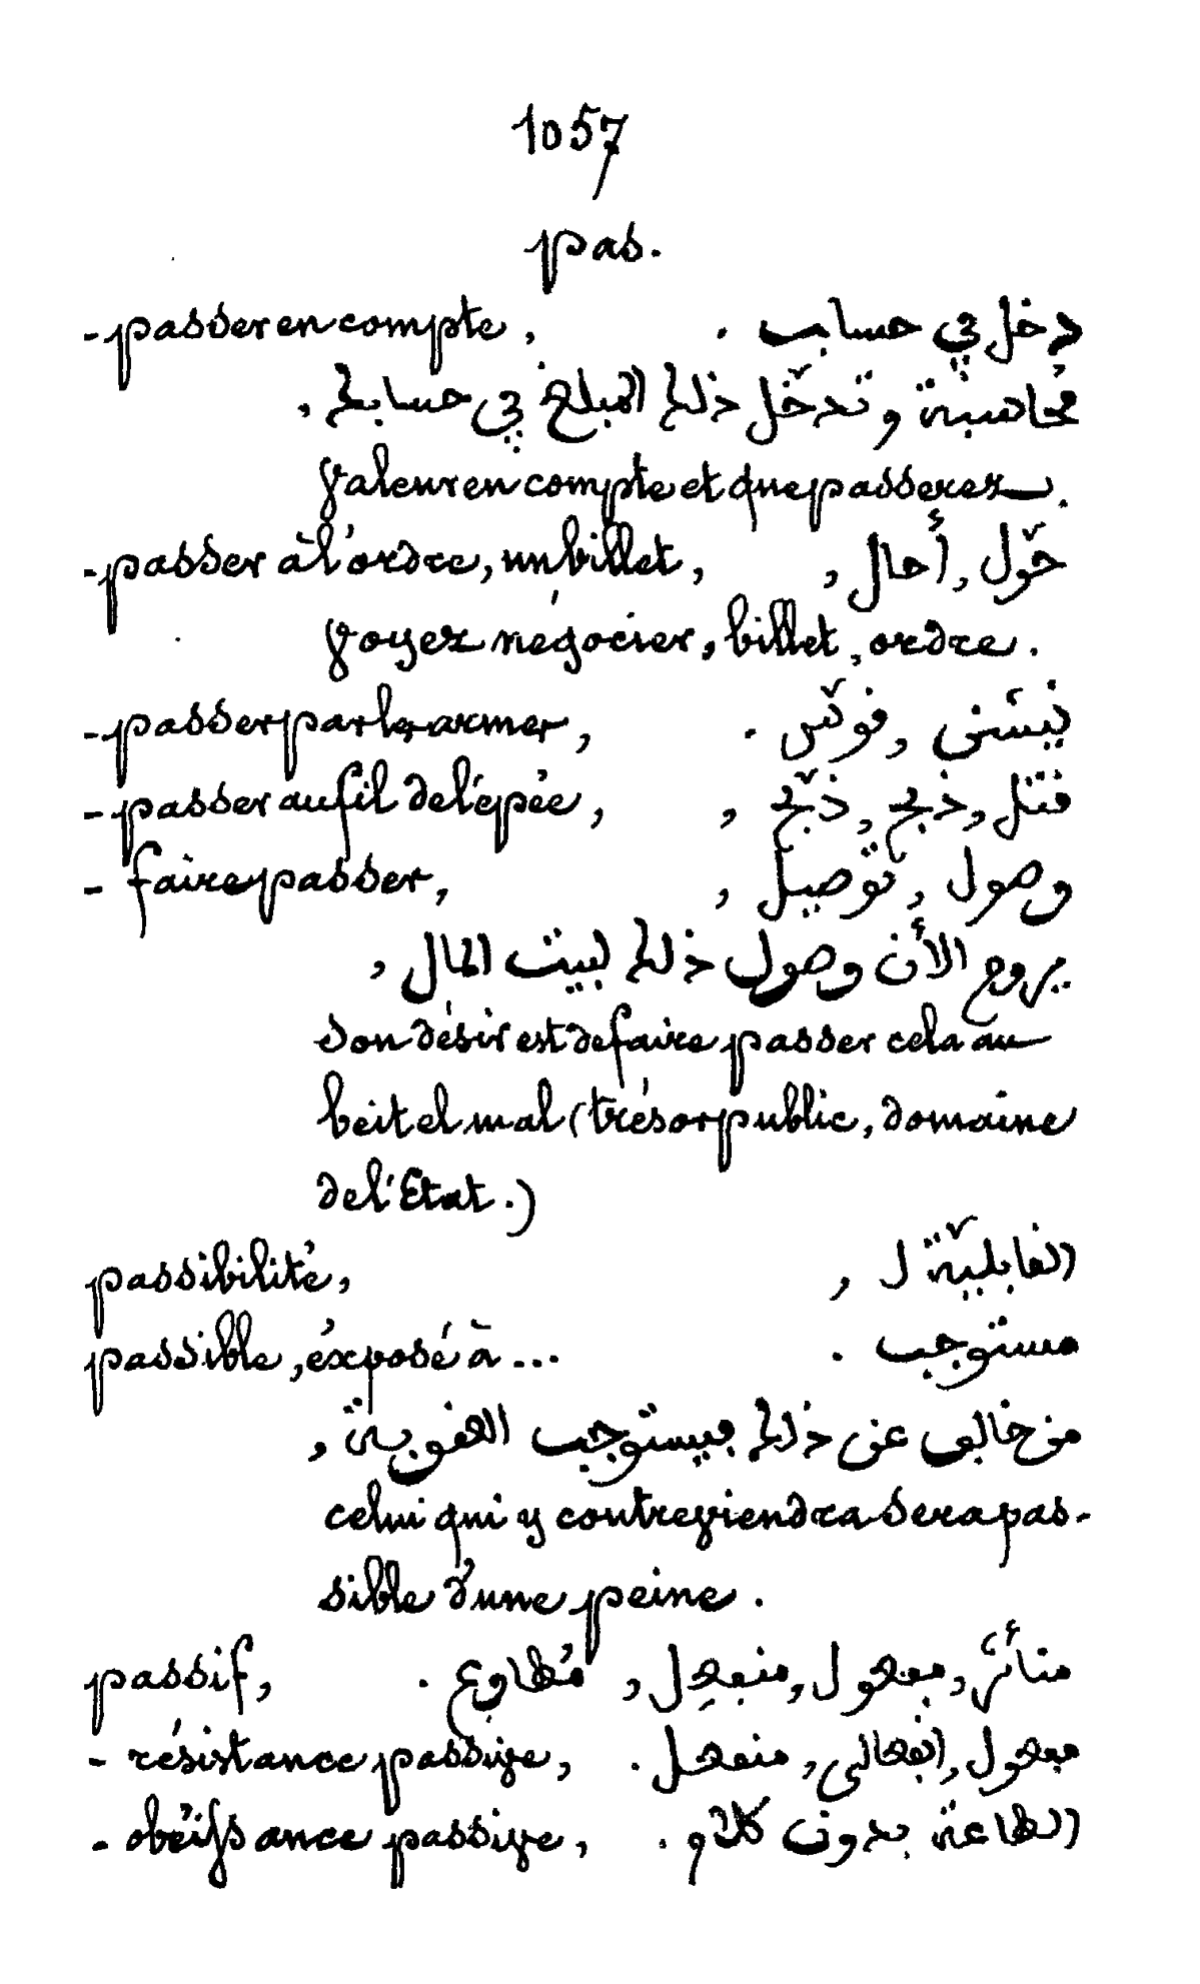 1057
pas.
- passer en compte, دخل في حساب .
محاسبة وتدخّل ذلك المبلغ في حسابك ,
valeur en compte et que passerez .
- passer à l'ordre, un billet, حوّل , أحال ,
voyez négocier, billet, ordre.
- passer par les armes, نيشن , قوّس .
- passer au fil de l'épée, قتل , ذبح , ذبّح ,
- faire passer, وصول , توصيل ,
يروم الأن وصول ذلك لبيت المال ,
son désir est de faire passer cela au
beit el mal (trésor public, domaine
de l'Etat.)
passibilité, القابليّة ل ,
passible, éxposé à ... مستوجب .
من خالف عن ذلك فيستوجب العقوبة ,
celui qui y contreviendra sera pas-
sible d'une peine .
passif, متأثّر , مفعول , منفعل , مُطاوع .
- résistance passive, مفعول , إنفعالى , منفعل .
- obéissance passive, الطاعة بدون كلام .